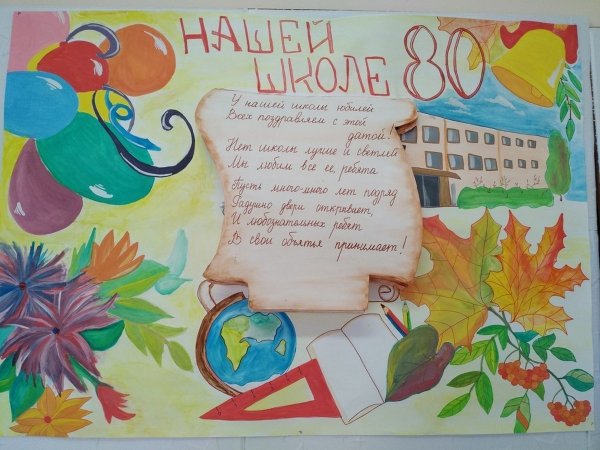 НАШЕЙ
ШКОЛЕ 80
У нашей школы юбилей
Всех поздравляем с этой
датой!
Нет школы лучше и светлей
Мы любим все её, ребята
Пусть много-много лет подряд
Радушно двери открывает,
И любознательных ребят
В свои объятья принимает!